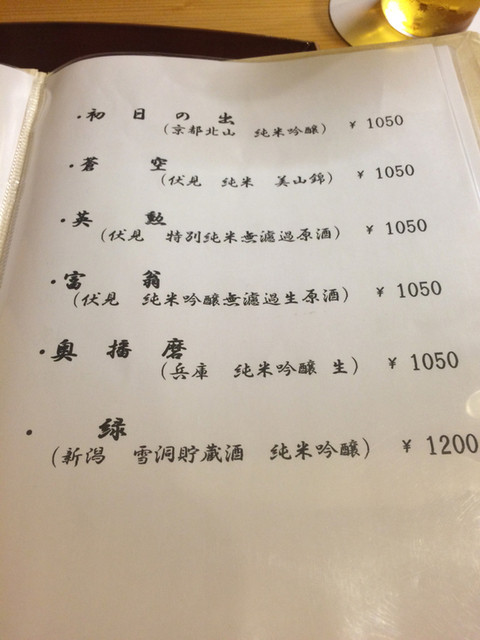 ・初日の出
(京都北山 純米吟醸) ¥1050
・蒼空
(伏見 純米 美山錦) ¥1050
・英勲
(伏見 特別純米無濾過原酒) ¥1050
・富翁
(伏見 純米吟醸無濾過生原酒) ¥1050
・奥播磨
(兵庫 純米吟醸 生) ¥1050
・緑
(新潟 雪洞貯蔵酒 純米吟醸) ¥1200